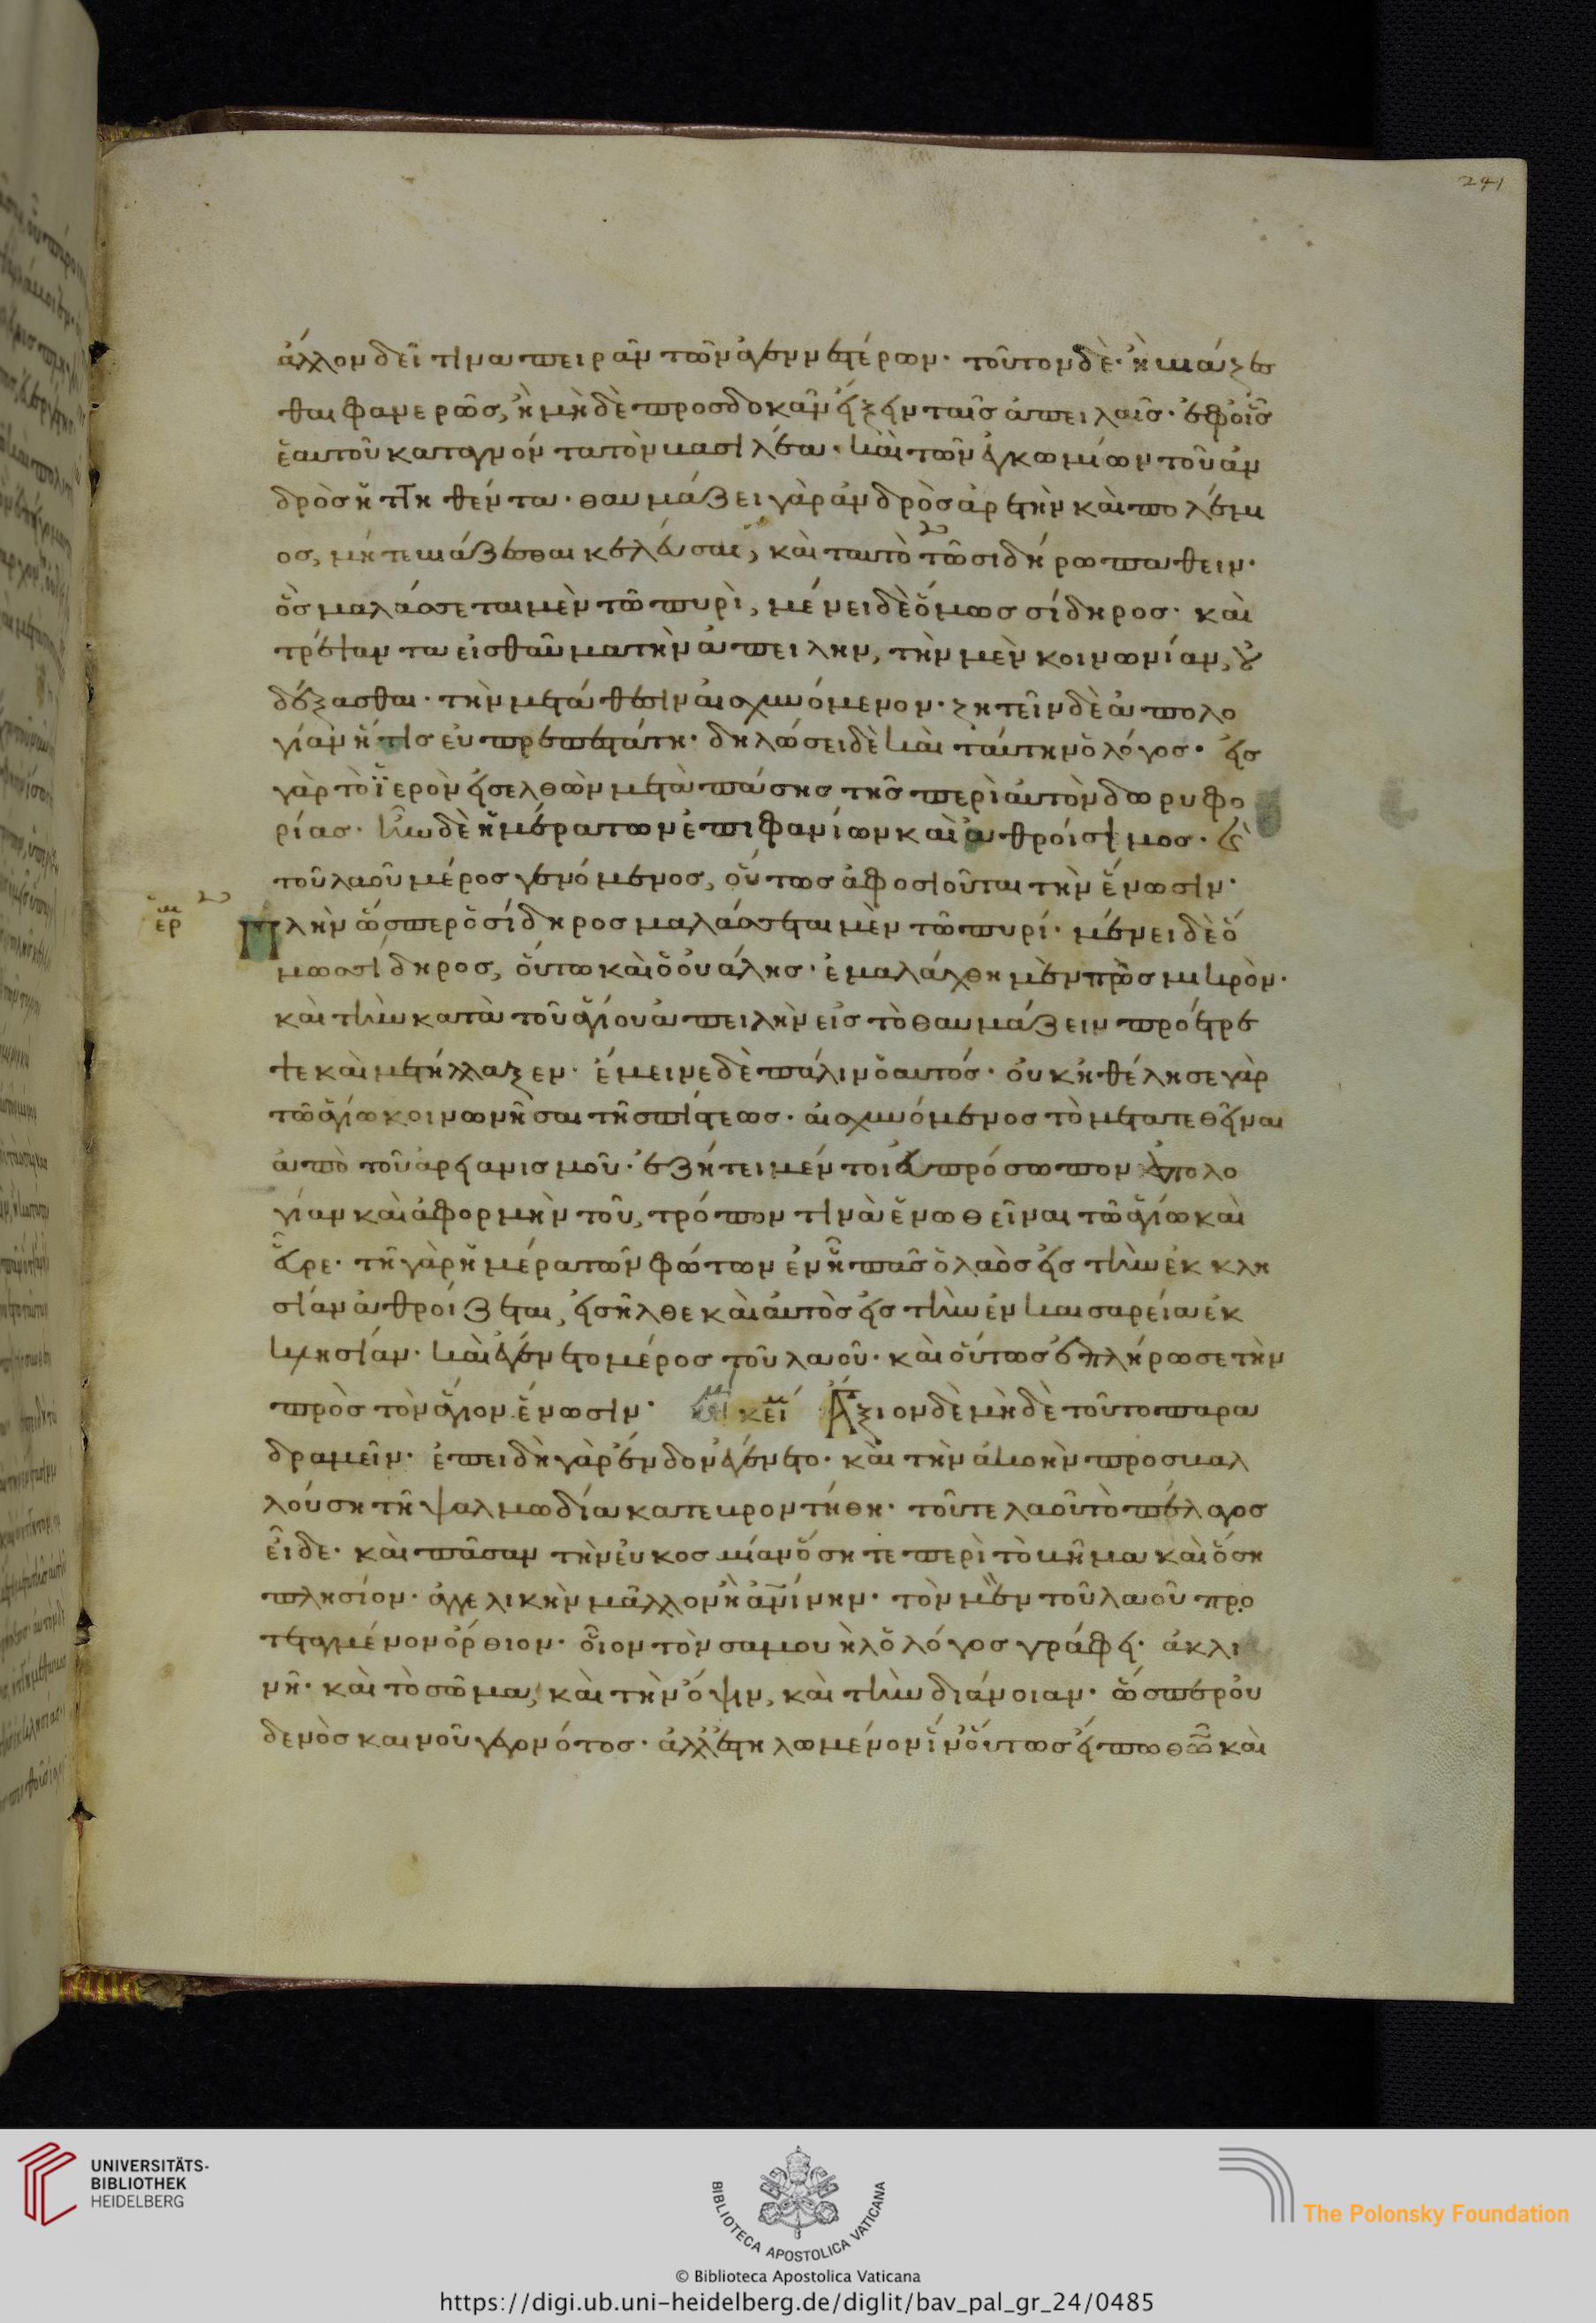 241
ἄλλον δεῖ τινα πειρᾶν τῶν ἀγεννεστέρων· τοῦτον δὲ· ἢ βιάζεσ
θαι φανερῶς, ἢ μηδὲ προσδοκᾶν εἴξειν ταῖς ἀπειλαῖς· ἐφ' οἷς
ἑαυτοῦ καταγνόντα τὸν βασιλέα· καὶ τῶν ἐγκωμίων τοῦ ἀν
δρὸς ἡττηθέντα· θαυμάζει γὰρ ἀνδρὸς ἀρετὴν καὶ πολέμι
ος, μήτε βιάζεσθαι κελεῦσαι, καὶ ταυτὸ τῶ σιδήρω παθεῖν·
ὃς μαλάσσεται μὲν τῶ πυρὶ, μένει δὲ ὅμως σίδηρος· καὶ
τρέψαντα εἰς θαῦμα τὴν ἀπειλὴν, τὴν μὲν κοινωνίαν, οὐ
δέξασθαι· τὴν μετάθεσιν αἰσχυνόμενον· ζητεῖν δὲ ἀπολο
γίαν ἥτις εὐπρεπεστάτη· δηλώσει δὲ καὶ ταύτην ὁ λόγος· εἰς
γὰρ τὸ ἱερὸν εἰσελθὼν μετὰ πάσης τῆς περὶ αὐτὸν δωρυφο
ρίας· ἦν δὲ ἡμέρα τῶν ἐπιφανίων καὶ ἀθροίσιμος· καὶ
τοῦ λαοῦ μέρος γενόμενος, οὕτως ἀφοσιοῦται τὴν ἕνωσιν·
ἑρμ
Πλὴν ὥσπερ ὁ σίδηρος μαλάσσεται μὲν τῶ πυρί· μένει δὲ ὅ
μως σίδηρος, οὕτω καὶ ὁ οὐάλης· ἐμαλάχθη μὲν πρὸς μικρὸν·
καὶ τὴν κατὰ τοῦ ἁγίου ἀπειλὴν εἰς τὸ θαυμάζειν προέτρε
ψε καὶ μετήλλαξεν· ἔμεινε δὲ πάλιν ὁ αὐτός· οὐκ ἠθέλησε γὰρ
τῶ ἁγίω κοινωνῆσαι τῆς πίστεως· αἰσχυνόμενος τὸ μετατεθεῖναι
ἀπὸ τοῦ ἀρειανισμοῦ· ἐζήτει μέντοι εὐπρόσωπον ἀπολο
γίαν καὶ ἀφορμὴν τοῦ, τρόπον τινὰ ἑνωθεῖναι τῶ ἁγίω καὶ
εὗρε· τῆ γὰρ ἡμέρα τῶν φώτων ἐν ἧ πᾶς ὁ λαὸς εἰς τὴν ἐκκλη
σίαν ἀθροίζεται, εἰσῆλθε καὶ αὐτὸς εἰς τὴν ἐν καισαρεία ἐκ
κλησίαν· καὶ ἐγένετο μέρος τοῦ λαοῦ· καὶ οὕτως ἐπλήρωσε τὴν
πρὸς τὸν ἅγιον ἕνωσιν· κείμ Ἄξιον δὲ μὴ δὲ τοῦτο παρα
δραμεῖν· ἐπειδὴ γὰρ ἔνδον ἐγένετο· καὶ τὴν ἀκοὴν προσβαλ
λούση τῆ ψαλμωδία κατεβροντήθη· τοῦ τε λαοῦ τὸ πέλαγος
εἶδε· καὶ πᾶσαν τὴν εὐκοσμίαν ὅση τε περὶ τὸ βῆμα καὶ ὅση
πλησίον· ἀγγελικὴν μᾶλλον ἢ ἀνίνην· τὸν μὲν τοῦ λαοῦ προ
τεταγμένον ὄρθιον· οἷον τὸν σαμουὴλ ὁ λόγος γράφει· ἀκλι
νῆ· καὶ τὸ σῶμα, καὶ τὴν ὄψιν, καὶ τὴν διάνοιαν· ὥσπερ οὐ
δενὸς καινοῦ γεγονότος· ἀλλ' ἐστηλωμένον ἵν' οὕτως εἴπω θῶ καὶ
UNIVERSITÄTS-
BIBLIOTHEK
HEIDELBERG
BIBLIOTECA APOSTOLICA VATICANA
The Polonsky Foundation
© Biblioteca Apostolica Vaticana
https://digi.ub.uni-heidelberg.de/diglit/bav_pal_gr_24/0485